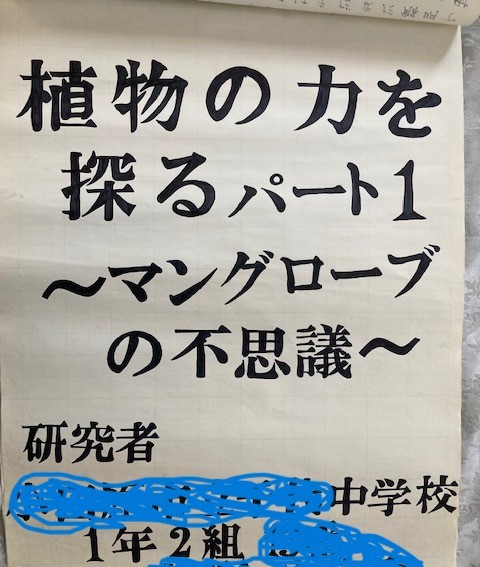 植物の力を
探るパート1
～マングローブ
の不思議～
研究者
中学校
1年2組